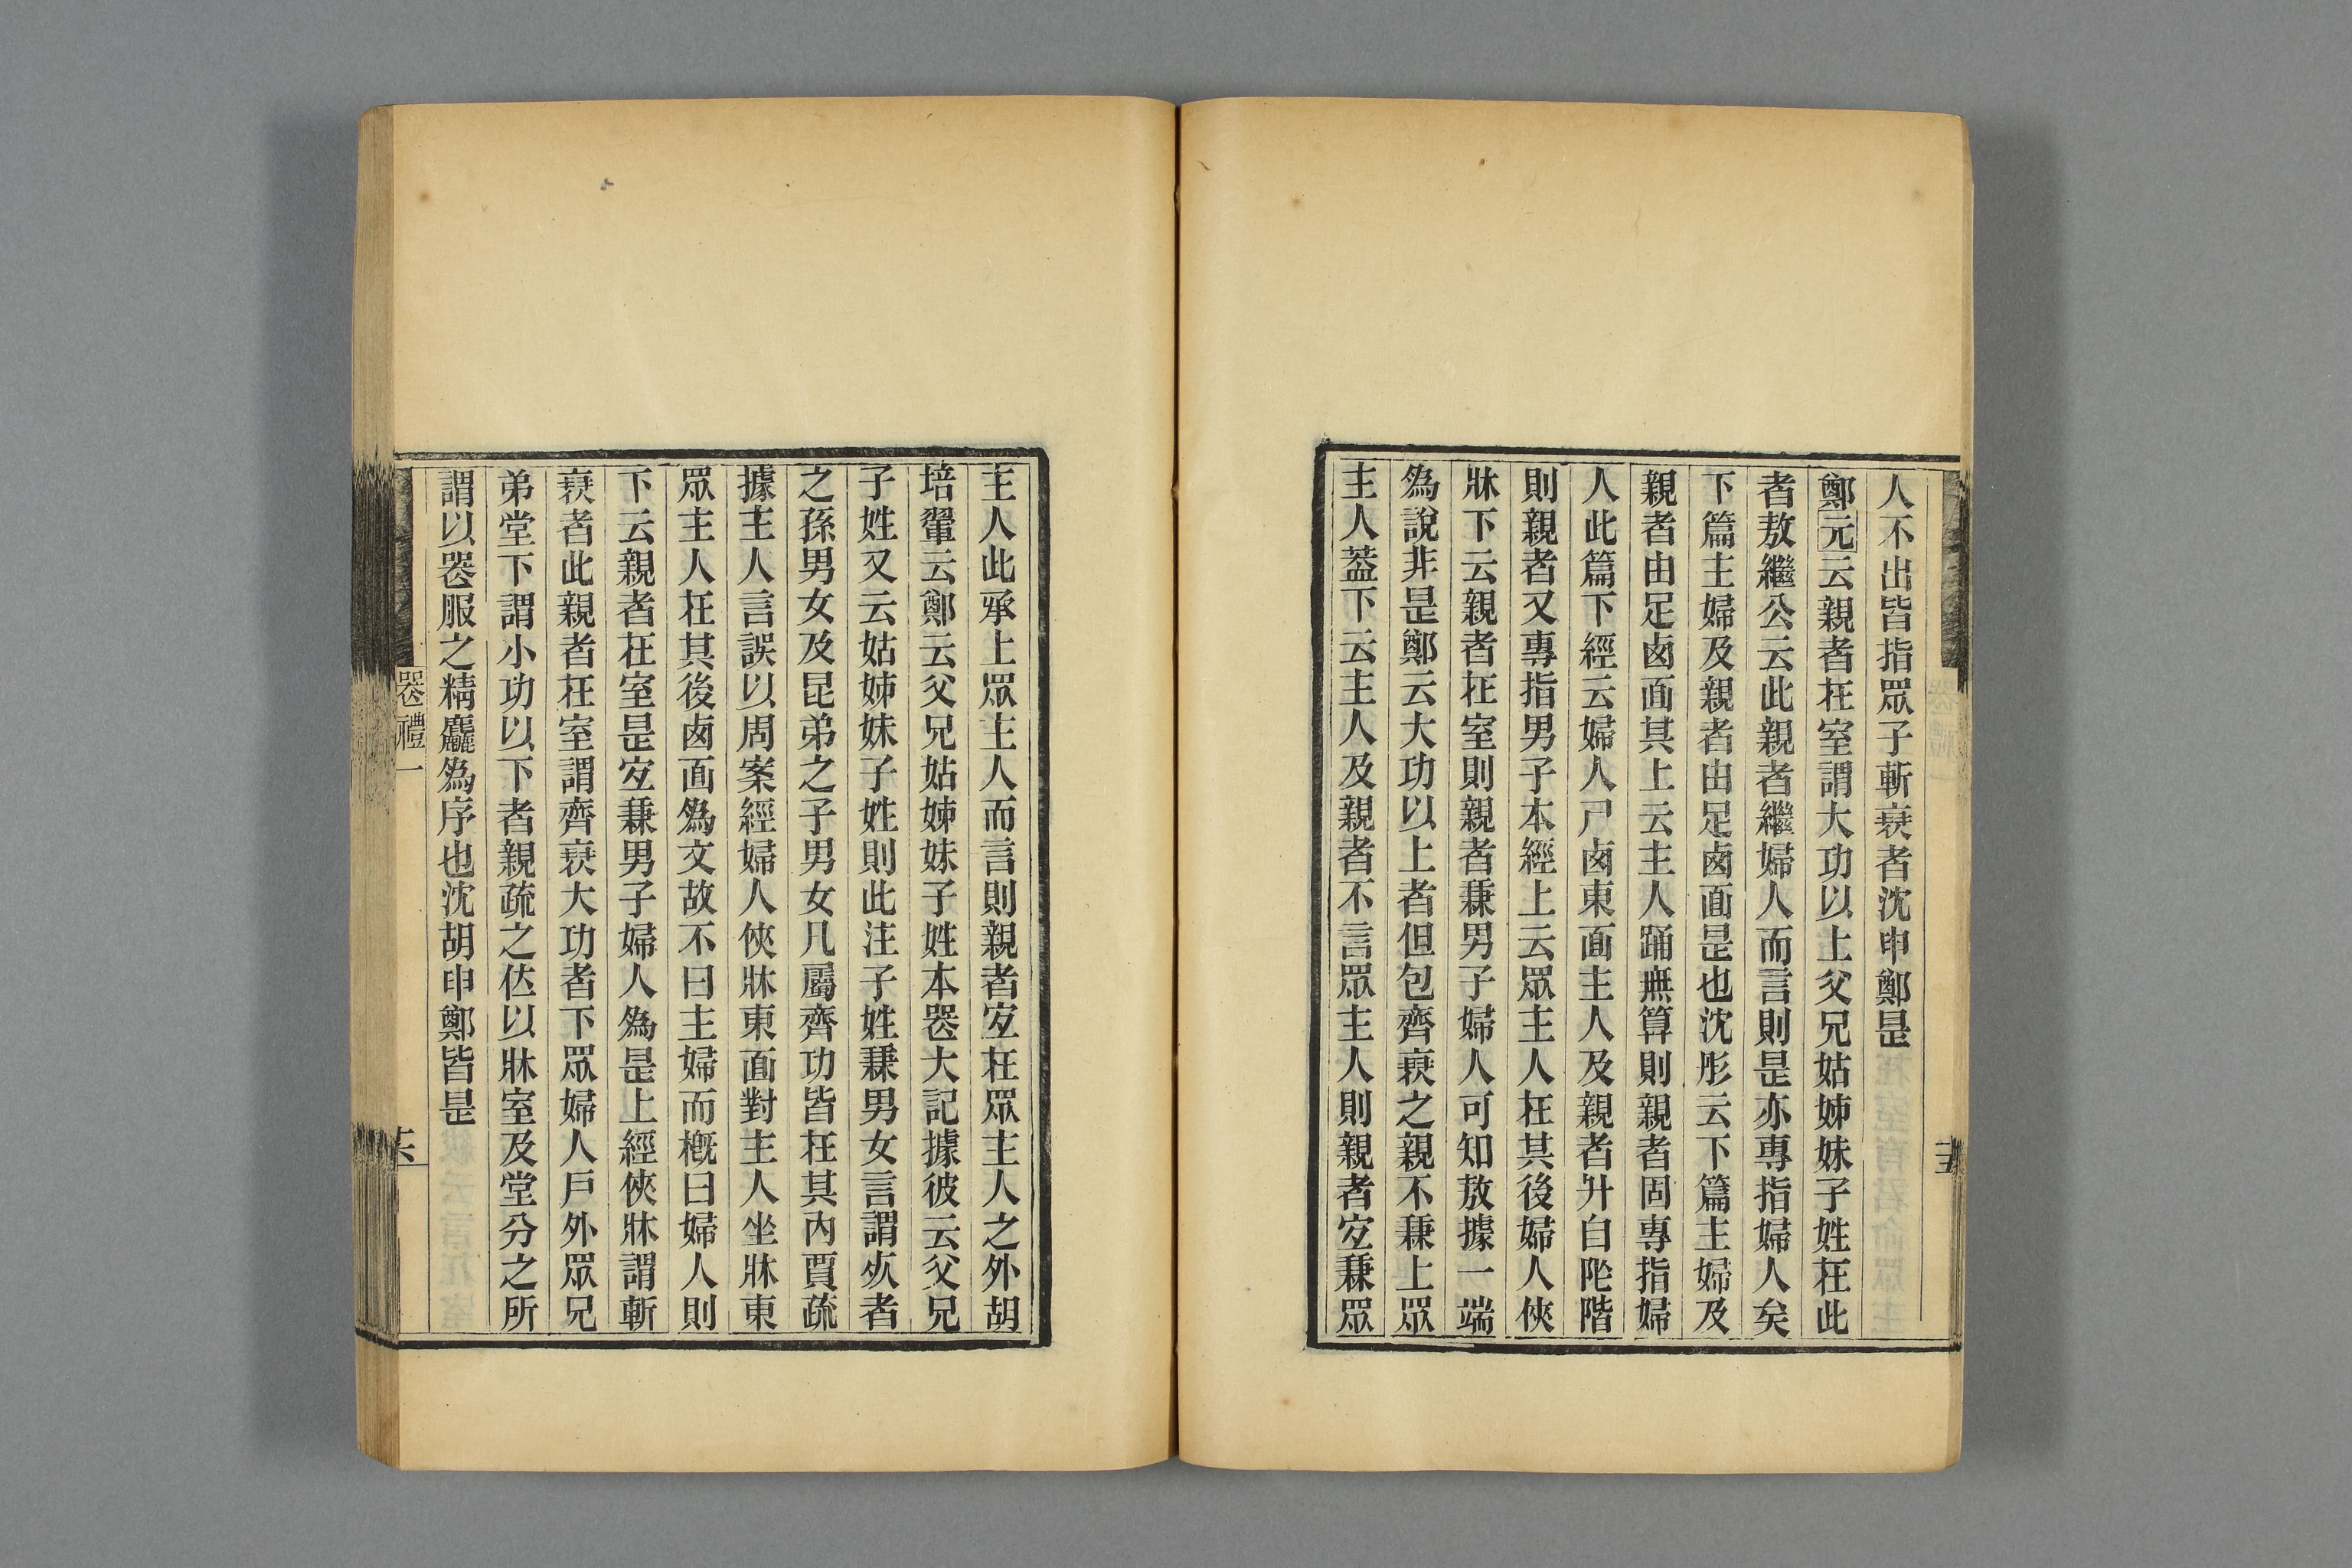 人不出皆指眾子斬衰者沈申鄭是
鄭元云親者在室謂大功以上父兄姑姊妹子姓在此
者敖繼公云此親者繼婦人而言則是亦專指婦人矣
下篇主婦及親者由足西面是也沈彤云下篇主婦及
親者由足西面其上云主人踊無算則親者固專指婦
人此篇下經云婦人尸西東面主人及親者升自阼階
則親者又專指男子本經上云眾主人在其後婦人俠
牀下云親者在室則親者兼男子婦人可知敖據一端
為說非是鄭云大功以上者但包齊衰之親不兼上眾
主人蓋下云主人及親者不言眾主人則親者宜兼眾
主人此承上眾主人而言則親者宜在眾主人之外胡
培翬云鄭云父兄姑姊妹子姓本喪大記據彼云父兄
子姓又云姑姊妹子姓則此注子姓兼男女言謂死者
之孫男女及昆弟之子男女凡屬齊功皆在其內賈疏
據主人言誤以周案經婦人俠牀東面對主人坐牀東
眾主人在其後西面為文故不曰主婦而概曰婦人則
下云親者在室是宜兼男子婦人為是上經俠牀謂斬
衰者此親者在室謂齊衰大功者下眾婦人戶外眾兄
弟堂下謂小功以下者親疏之佐以牀室及堂分之所
謂以喪服之精麤為序也沈胡申鄭皆是
喪禮一
十六